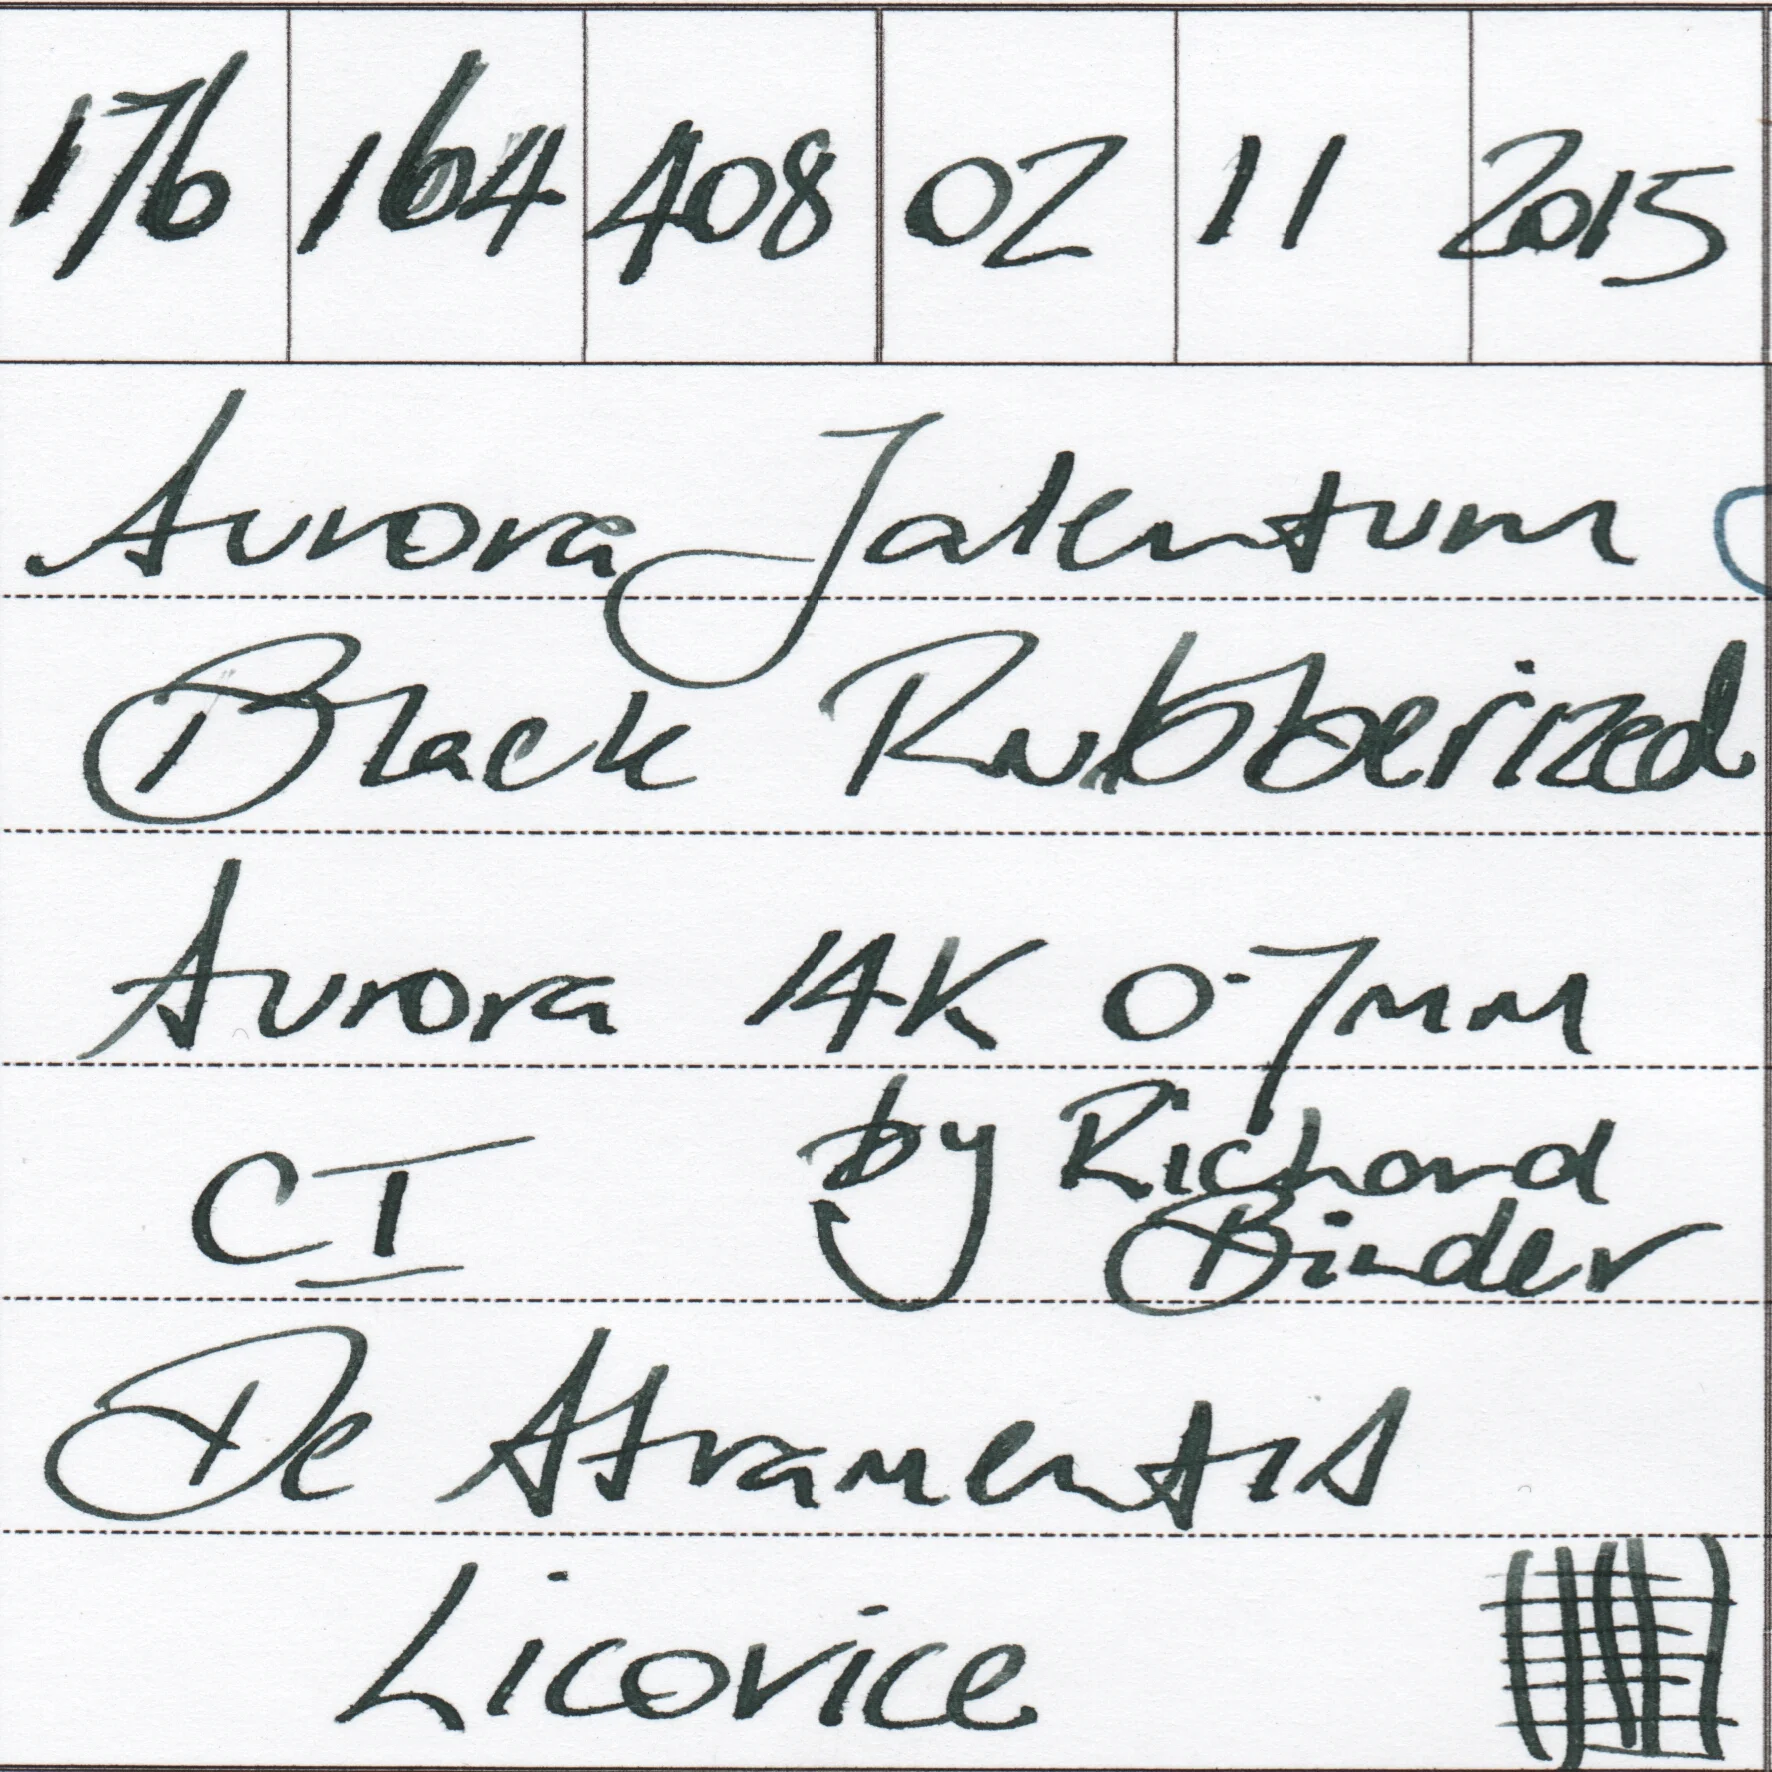 176 164 408 02 11 2015
Aurora Talentum
Black Rubberized
Aurora 14K 0.7mm
CI by Richard
Binder
De Atramentis
Licorice